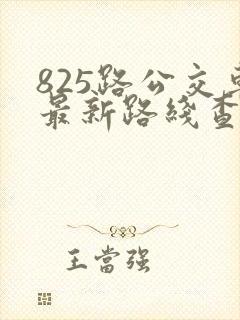 825路公交
最新路綫查
王當强